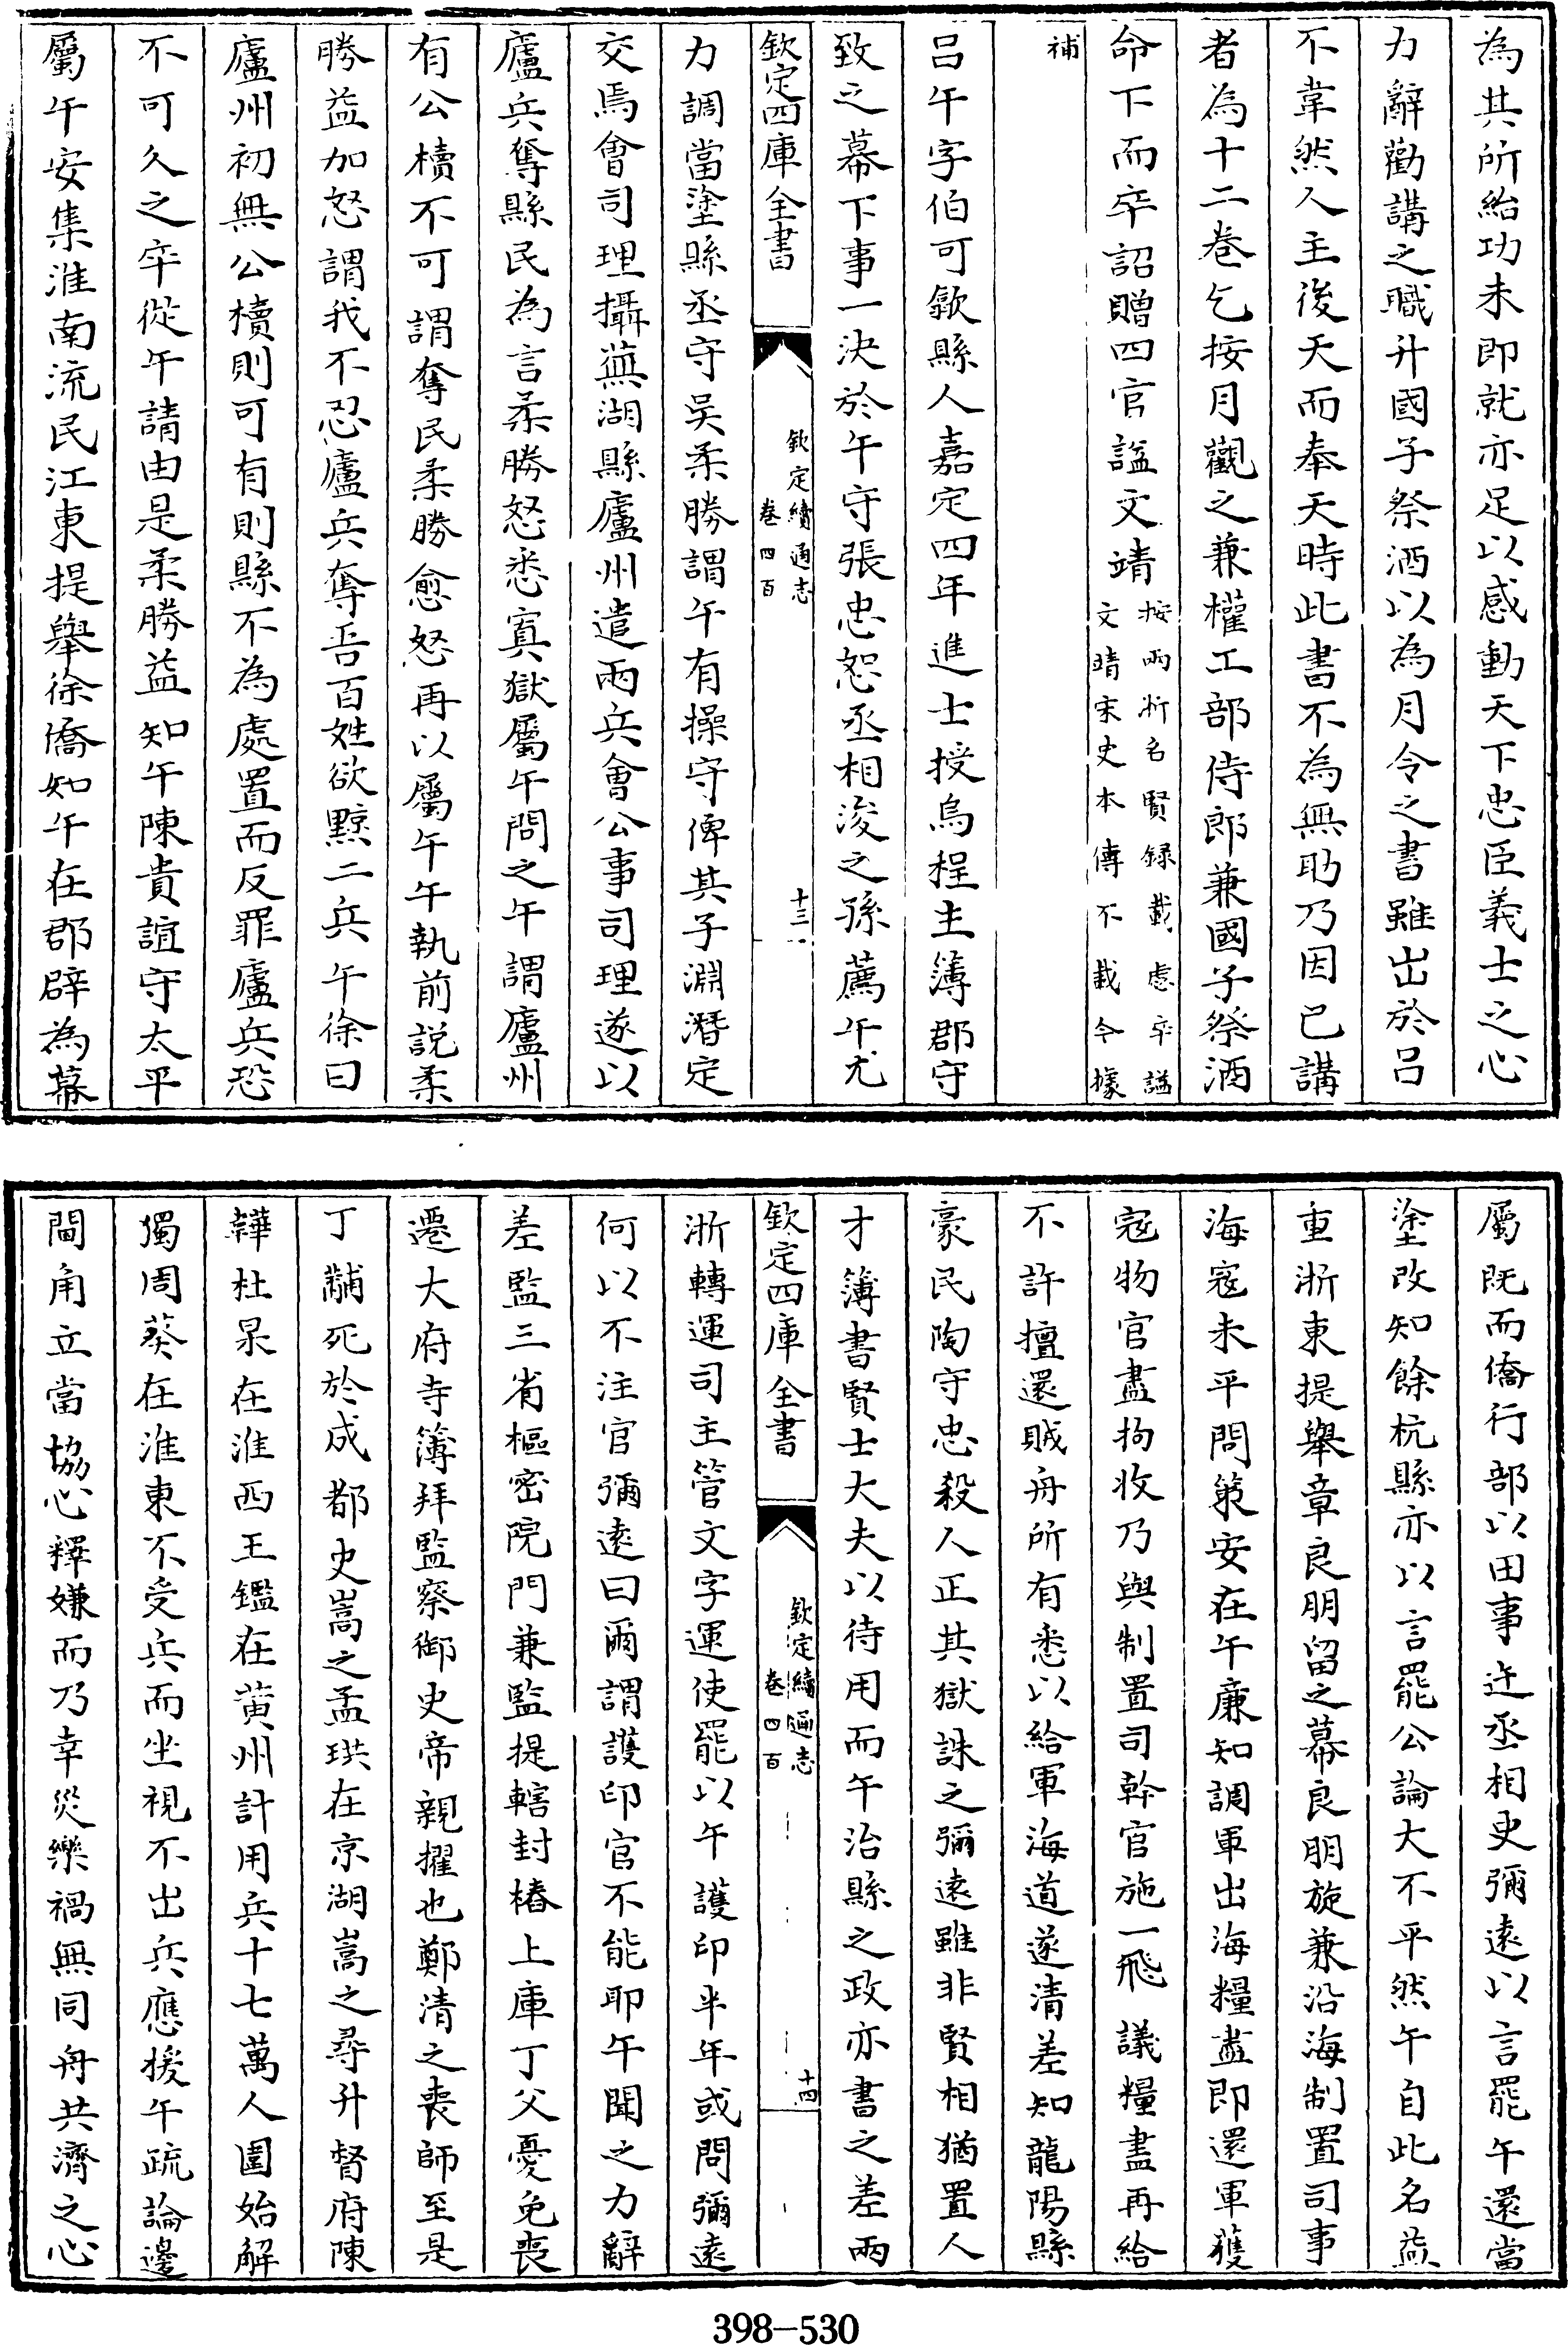 為其所紿功未即就亦足以感動天下忠臣義士之心
力辭勸講之職升國子祭酒以為月令之書雖出於呂
不韋然人主後天而奉天時此書不為無助乃因已講
者為十二卷乞按月觀之兼權工部侍郎兼國子祭酒
命下而卒詔贈四官諡文靖按兩浙名賢録載慮卒諡
文晴宋史本傳不載今據
補
呂午字伯可歙縣人嘉定四年進士授烏程主簿郡守
致之幕下事一決於午守張忠恕丞相浚之孫薦午尤
欽定四庫全書
欽定續通志
卷四百
十三
力調當塗縣丞守吳柔勝謂午有操守俾其子淵潛定
交焉會司理攝蕪湖縣廬州遣兩兵會公事司理遂以
廬兵奪縣民為言柔勝怒悉寘獄屬午問之午謂廬州
有公櫝不可謂奪民柔勝愈怒再以屬午午執前説柔
勝益加怒謂我不忍廬兵奪吾百姓欲黥二兵午徐曰
廬州初無公櫝則可有則縣不為處置而反罪廬兵恐
不可久之卒從午請由是柔勝益知午陳貴誼守太平
屬午安集淮南流民江東提舉徐僑知午在郡辟為幕
屬既而僑行部以田事迕丞相史彌遠以言罷午還當
塗改知餘杭縣亦以言罷公論大不平然午自此名益
重浙東提舉章良朋留之幕良朋旋兼沿海制置司事
海寇未平問策安在午廉知調軍出海糧盡即還軍獲
寇物官盡拘收乃與制置司幹官施一飛議糧盡再給
不許擅還賊舟所有悉以給軍海道遂清差知龍陽縣
豪民陶守忠殺人正其獄誅之彌遠雖非賢相猶置人
才簿書賢士大夫以待用而午治縣之政亦書之差兩
欽定四庫全書
欽定續通志
卷四百
十四
浙轉運司主管文字運使罷以午護印半年或問彌遠
何以不注官彌遠曰爾謂護印官不能耶午聞之力辭
差監三省樞密院門兼監提轄封樁上庫丁父憂免喪
遷大府寺簿拜監察御史帝親擢也鄭清之喪師至是
丁黼死於成都史嵩之孟珙在京湖嵩之尋升督府陳
韡杜杲在淮西王鑑在黄州計用兵十七萬人圍始解
獨周葵在淮東不受兵而坐視不出兵應援午疏論邊
閫角立當協心釋嫌而乃幸災樂禍無同舟共濟之心
398-530